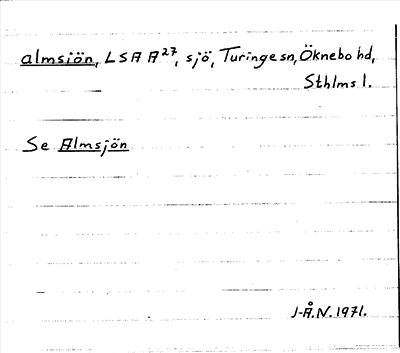 almsiön, LSA A27, sjö, Turinge sn, Öknebo hd,
Sthlms l.
Se Almsjön
J-Å.N. 1971.